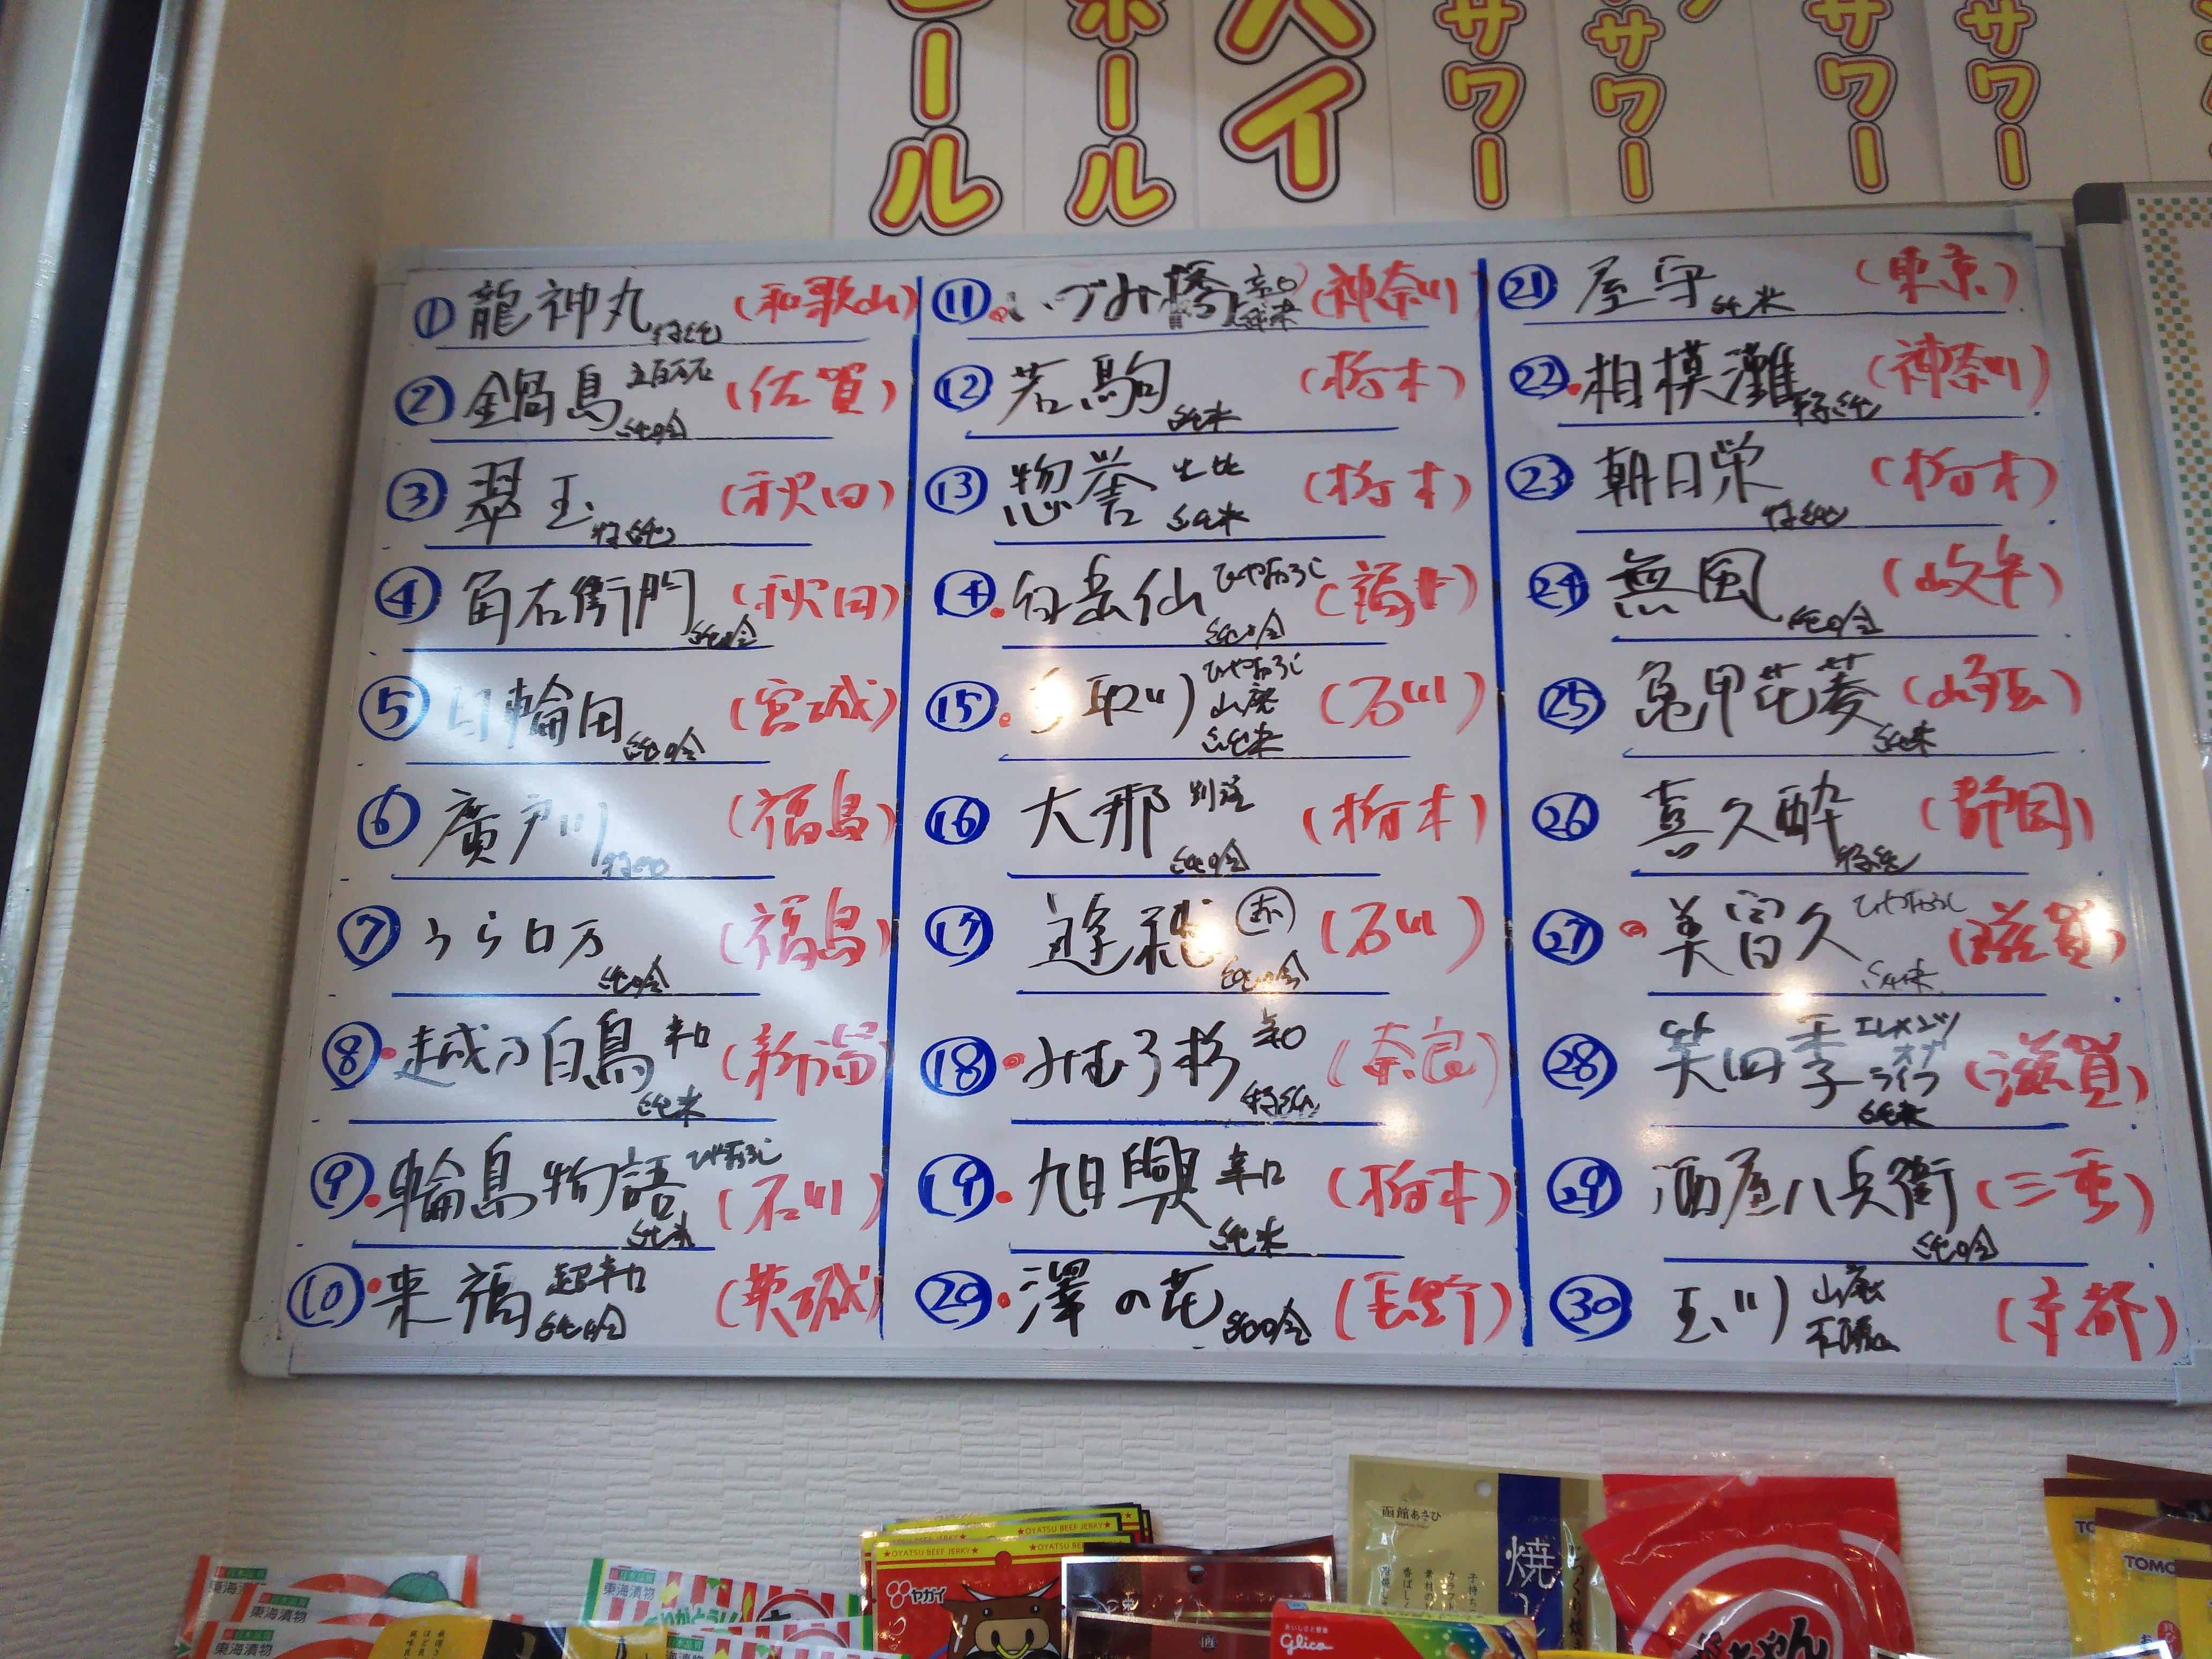 ール
ホール
ハイ
サワー
サワー
サワー
サワー
① 龍神丸 特純 (和歌山)
② 鍋島 五百万石 純吟 (佐賀)
③ 翠玉 特純 (秋田)
④ 角右衛門 純吟 (秋田)
⑤ 日輪田 純吟 (宮城)
⑥ 廣戸川 (福島)
⑦ うらロ万 純吟 (福島)
⑧ 越乃白鳥 辛口 純米 (新潟)
⑨ 輪島物語 ひやおろし 純米 (石川)
⑩ 来福 超辛口 純吟 (茨城)
⑪ いづみ橋 辛口 純米 (神奈川)
⑫ 若駒 純米 (栃木)
⑬ 惣誉 生酛 純米 (栃木)
⑭ 白岳仙 ひやおろし 純吟 (福井)
⑮ 手取川 ひやおろし 山廃 純米 (石川)
⑯ 大那 別誂 純吟 (栃木)
⑰ 遊穂 赤 純吟 (石川)
⑱ みむろ杉 辛口 特純 (奈良)
⑲ 旭興 辛口 純米 (栃木)
⑳ 澤の花 純吟 (長野)
㉑ 屋守 純米 (東京)
㉒ 相模灘 特純 (神奈川)
㉓ 朝日栄 特純 (栃木)
㉔ 無風 純吟 (岐阜)
㉕ 亀甲花菱 純米 (埼玉)
㉖ 喜久酔 特純 (静岡)
㉗ 美冨久 ひやおろし 純米 (滋賀)
㉘ 笑四季 エレメンツ オブ ライフ 純米 (滋賀)
㉙ 酒屋八兵衛 純吟 (三重)
㉚ 玉川 山廃 (京都)
東海漬物
東海漬物
東海漬物
東海漬物
OYATSU BEEF JERKY
OYATSU BEEF JERKY
ヤガイ
函館あさひ
焼
Glico
TOMO